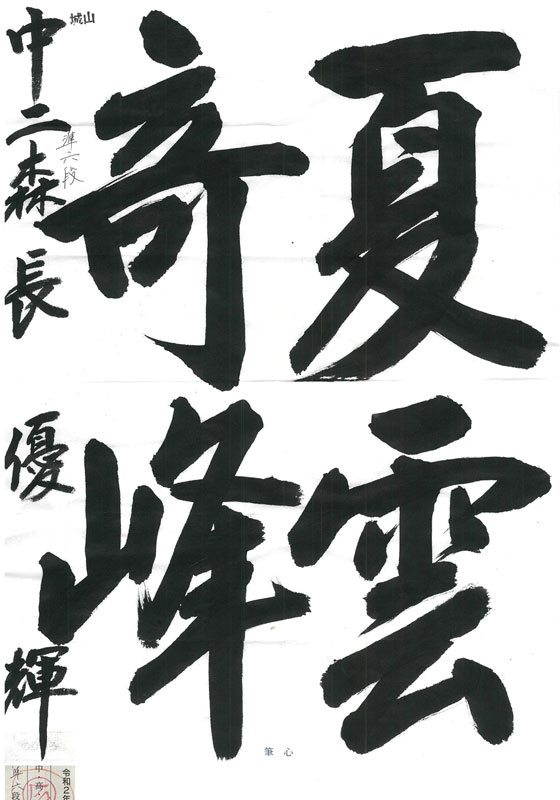 夏雲
奇峰
城山
中二 森長 優輝
準六段
心筆
令和2年
中・高
準六段